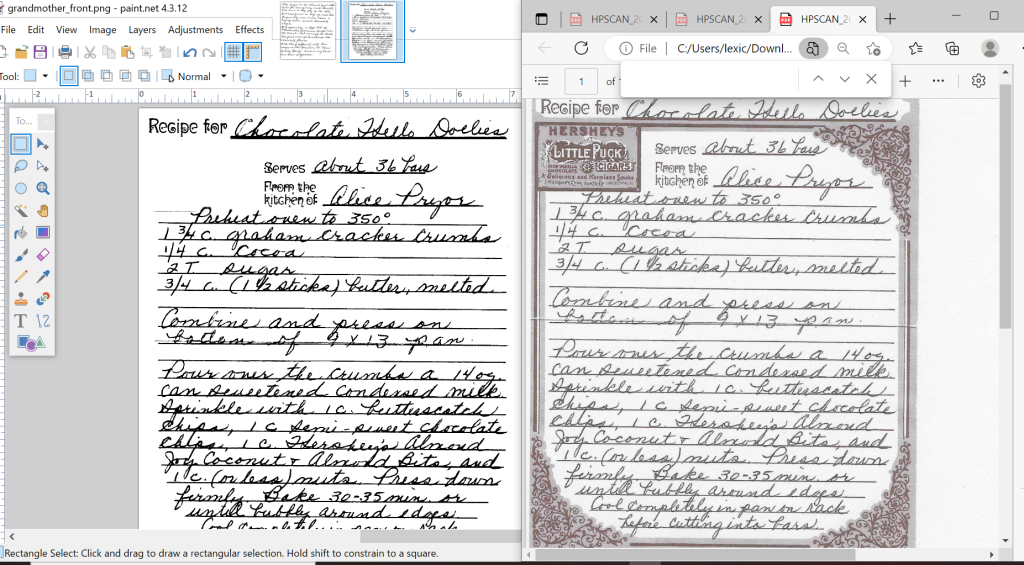 grandmother_front.png - paint.net 4.3.12
File Edit View Image Layers Adjustments Effects
Tool: Normal
-2 -1 0 1 2 3 4 5 6 7
To...
Recipe for Chocolate Hello Doelies
Serves About 36 bars
From the
kitchen of Alice Pryor
Preheat oven to 350°
1 3/4 c. graham cracker crumbs
1/4 c. Cocoa
2 T sugar
3/4 c. (1 1/2 sticks) butter, melted.
Combine and press on
bottom of 9 x 13 pan.
Pour over the crumbs a 14 oz.
can sweetened Condensed milk.
Sprinkle with 1 c. butterscotch
chips, 1 c semi-sweet chocolate
chips, 1 c. Hershey's Almond
Joy Coconut + Almond Bits, and
1 c. (or less) nuts. Press down
firmly. Bake 30-35 min. or
until bubbly around edges
Cool completely in pan on rack
Rectangle Select: Click and drag to draw a rectangular selection. Hold shift to constrain to a square.
HPSCAN_20 HPSCAN_20 HPSCAN_20
File C:/Users/lexic/Downl...
1 of 1
Recipe for Chocolate Hello Doelies
HERSHEY'S
LITTLE PUCK
CIGARS
Serves About 36 bars
From the
kitchen of Alice Pryor
Preheat oven to 350°
1 3/4 c. graham cracker crumbs
1/4 c. Cocoa
2 T sugar
3/4 c. (1 1/2 sticks) butter, melted.
Combine and press on
bottom of 9 x 13 pan.
Pour over the crumbs a 14 oz.
can sweetened Condensed milk.
Sprinkle with 1 c. butterscotch
chips, 1 c semi-sweet chocolate
chips, 1 c. Hershey's Almond
Joy Coconut + Almond Bits, and
1 c. (or less) nuts. Press down
firmly. Bake 30-35 min. or
until bubbly around edges
Cool completely in pan on rack
before cutting into bars.